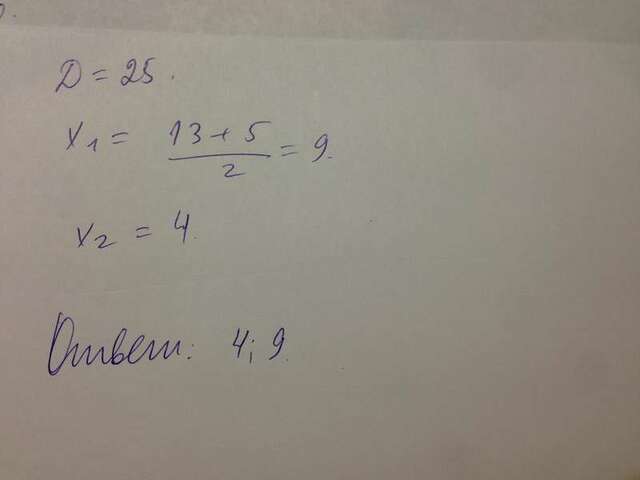 D = 25.
x₁ = (13+5)/2 = 9.
x₂ = 4.
Ответ: 4; 9.